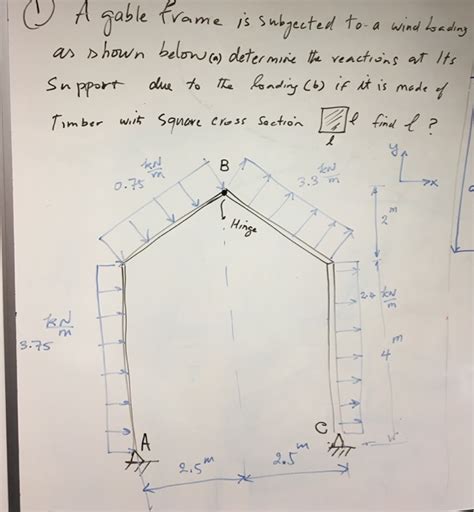 1) A gable frame is subjected to a wind loading
as shown below (a) determine the reactions at its
Support due to the loading (b) if it is made of
Timber with Square Cross Section l find l ?
l
y
x
B
0.75 kN/m
3.3 kN/m
Hinge
2 m
kN/m
3.75
kN/m
4 m
A
C
2.5 m
2.5 m